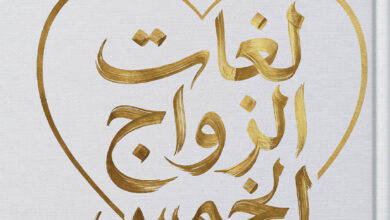 لغات
الزواج
الخمس